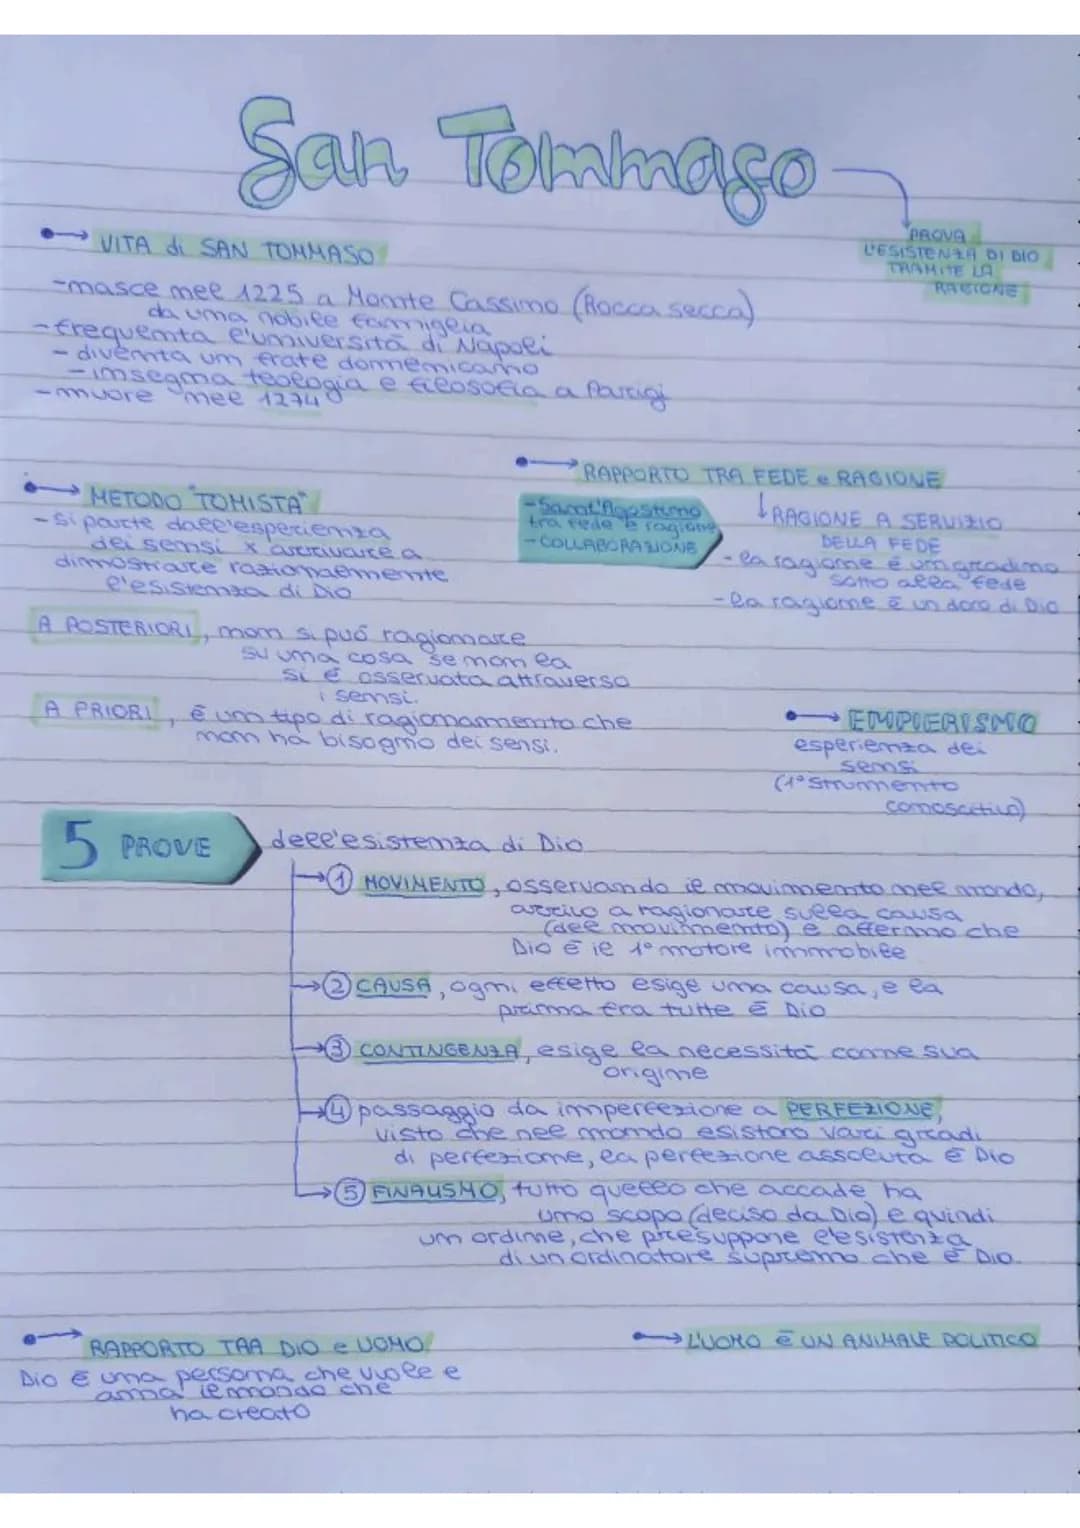 San Tommaso
PROVA
L'ESISTENZA DI DIO
TRAMITE LA
RAGIONE
VITA di SAN TOMMASO
-nasce nel 1225 a Monte Cassino (Rocca secca)
da una nobile famiglia
-frequenta l'università di Napoli
-diventa un frate domenicano
-insegna teologia e filosofia a Parigi
-muore nel 1274
RAPPORTO TRA FEDE e RAGIONE
-Sant'Agostino
tra fede e ragione
-COLLABORAZIONE
RAGIONE A SERVIZIO
DELLA FEDE
-la ragione è un gradino
sotto alla fede
-la ragione è un dono di Dio
METODO "TOMISTA"
-si parte dall'esperienza
dei sensi x arrivare a
dimostrare razionalmente
l'esistenza di Dio
A POSTERIORI, non si può ragionare
su una cosa se non la
si è osservata attraverso
i sensi.
A PRIORI, è un tipo di ragionamento che
non ha bisogno dei sensi.
EMPIERISMO
esperienza dei
sensi
(1° strumento
conoscitivo)
5 PROVE dell'esistenza di Dio
1 MOVIMENTO, osservando il movimento nel mondo,
arrivo a ragionare sulla causa
(del movimento) e affermo che
Dio è il 1° motore immobile
2 CAUSA, ogni effetto esige una causa, e la
prima fra tutte è Dio
3 CONTINGENZA, esige la necessità come sua
origine
4 passaggio da imperfezione a PERFEZIONE,
visto che nel mondo esistono vari gradi
di perfezione, la perfezione assoluta è Dio
5 FINALISMO, tutto quello che accade ha
uno scopo (deciso da Dio) e quindi
un ordine, che presuppone l'esistenza
di un ordinatore supremo che è Dio.
RAPPORTO TRA DIO e UOMO
Dio è una persona che vuole e
ama il mondo che
ha creato
L'UOMO È UN ANIMALE POLITICO